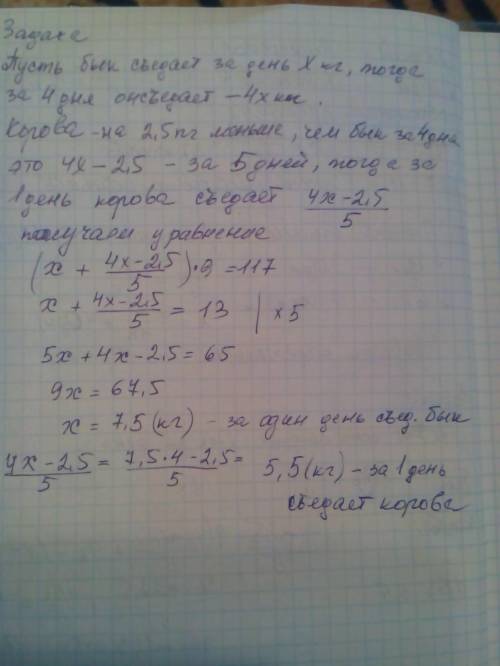 Задача
Пусть бык съедает за день x кг, тогда
за 4 дня он съедает – 4x кг.
Корова – на 2,5 кг меньше, чем бык за 4 дня
это 4x – 2,5 – за 5 дней, тогда за
1 день корова съедает (4x – 2,5)/5
получаем уравнение
(x + (4x – 2,5)/5) · 9 = 117
x + (4x – 2,5)/5 = 13 | × 5
5x + 4x – 2,5 = 65
9x = 67,5
x = 7,5 (кг) – за один день съед. бык
(4x – 2,5)/5 = (7,5 · 4 – 2,5)/5 = 5,5 (кг) – за 1 день
съедает корова